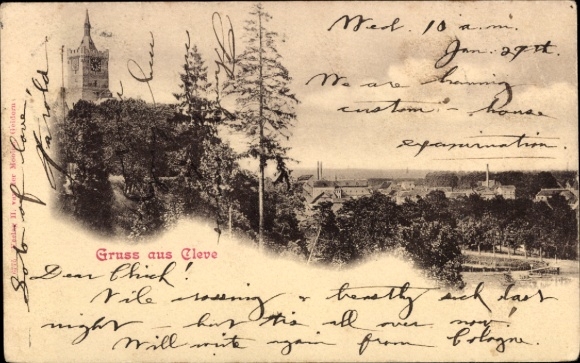 Wed. 10 a.m.
Jan. 29th.
We are having
custom-house
examination.
Gruss aus Cleve
Dear Chick!
Vile crossing & beastly sick last
night - but tis all over now!
Will write again from Cologne.
of love
Harold